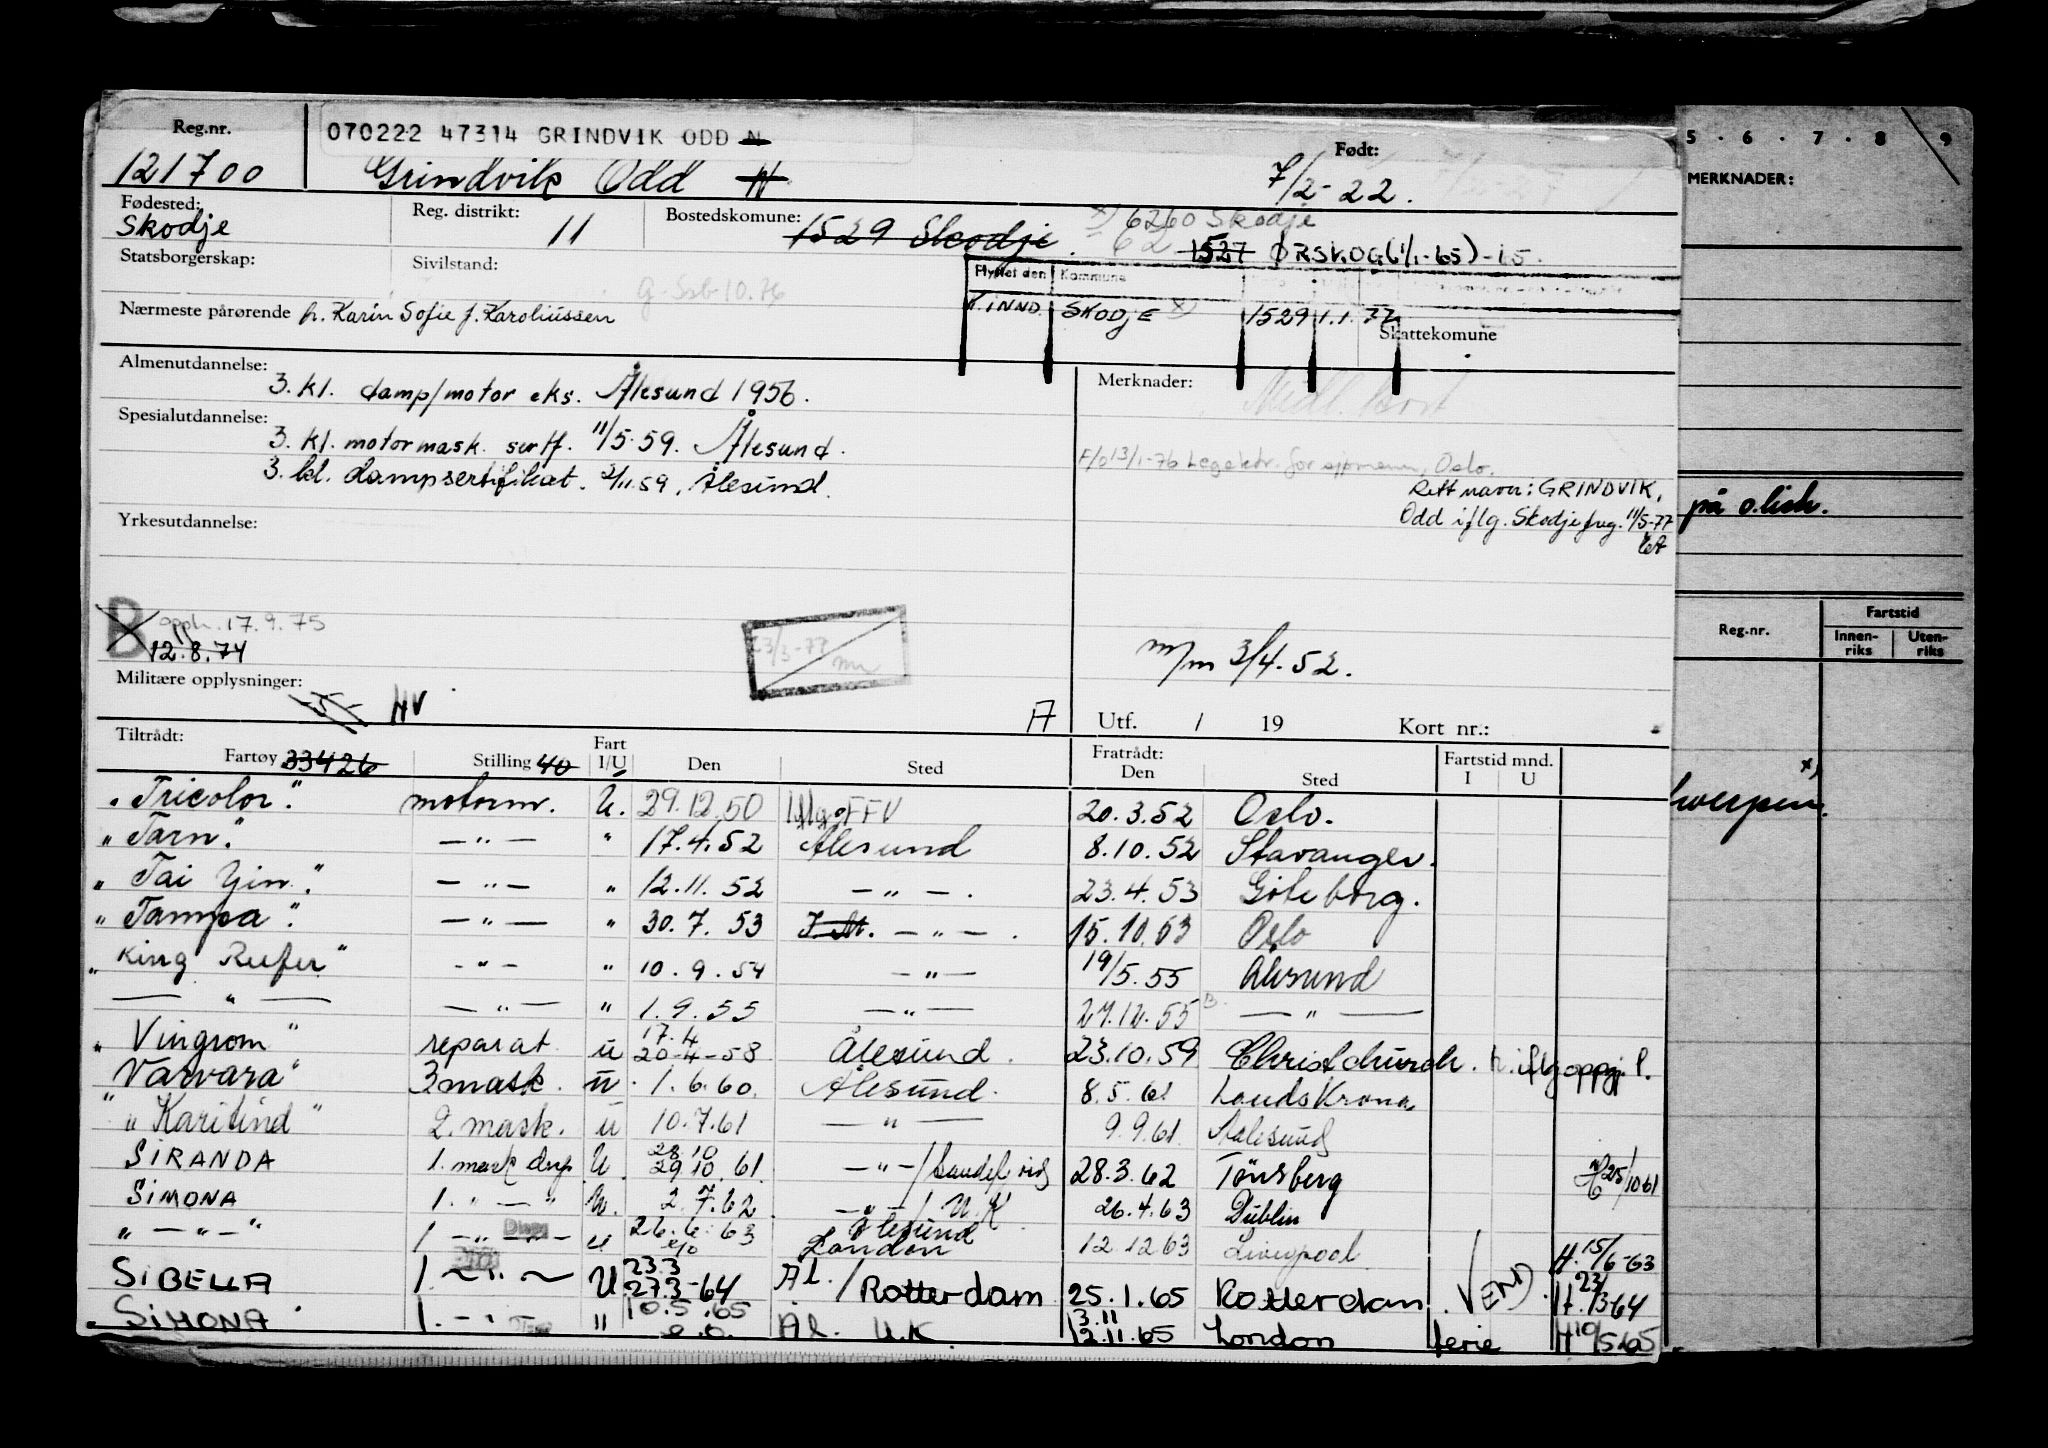 Reg.nr. 070222 47314 GRINDVIK ODD N Født:
121700 Grindvik Odd N 7/2-22.
Fødested: Skodje Reg. distrikt: 11 Bostedskomune: 1529 Skodje x) 6260 Skodje
1527 ØRSKOG (1/1-65)-15.
Statsborgerskap: Sivilstand: Flyttet den Kommune
Nærmeste pårørende h. Karin Sofie f. Karoliussen T.INND. SKODJE x) 1529 1.1.77
Skattekomune
Almenutdannelse: 3. kl. damp/motor eks. Ålesund 1956. Merknader:
Spesialutdannelse: 3. kl. motormask. sertf. 11/5-59. Ålesund.
3. kl. dampsertifikat. 2/11.59. Ålesund.
F/o 13/1-76 Legektr. for sjømenn, Oslo.
Rett navn: GRINDVIK,
Odd iflg. Skodje freg. 11/5-77
Yrkesutdannelse:
B opph. 17.9.75
12.8.74
23/3-77
m/m 3/4-52.
Militære opplysninger: HV
A Utf. / 19 Kort nr.:
Tiltrådt: Fratrådt:
Fartøy 33426 Stilling 40 Fart I/U Den Sted Den Sted Fartstid mnd. I U
"Tricolor". motorm. U. 29.12.50 Iflg. FFV 20.3.52 Oslo.
"Tarn". — " — " 17.4.52 Ålesund 8.10.52 Stavanger.
"Tai Yin". — " — " 12.11.52 — " — . 23.4.53 Göteborg.
"Tampa". — " — " 30.7.53 — " — . 15.10.53 Oslo
"King Rufer" - " - " 10.9.54 — " — 19/5.55 Ålesund
— " — — " — " 1.9.55 — " — 27.12.55 — " —
"Vingrom" reparat. u 17.4 20-4-58 Ålesund. 23.10.59 Christchurch.
Varvara" 3 mask. u. 1.6.60. Ålesund. 8.5.61 Landskrona.
"Karitind" 2. mask. u 10.7.61 — " — 9.9.61 Ålesund
SIRANDA 1. mask U. 28.10 29.10.61. — " — / Sandefj. 28.3.62 Tönsberg 25/1061
SIMONA 1. " — " U. 2.7.62 — " — / U.K 26.4.63 Dublin
" — " — " 1 — " — u 26.6.63 Ålesund London 12.12.63 Liverpool H. 15/6-63
SIBELLA 1. ~ " ~ U 23.3 27.3-64 Ål. / Rotterdam 25.1.65 Rotterdam. VEND. H. 23/3-64
SIMONA 1. - " - " 10.5.65 Ål. U.K 3.11 12.11.65 London ferie H 10/5-65
5 . 6 . 7 . 8 9
MERKNADER:
på o.lish.
Reg.nr. Fartstid
Innen-riks Uten-riks
x)